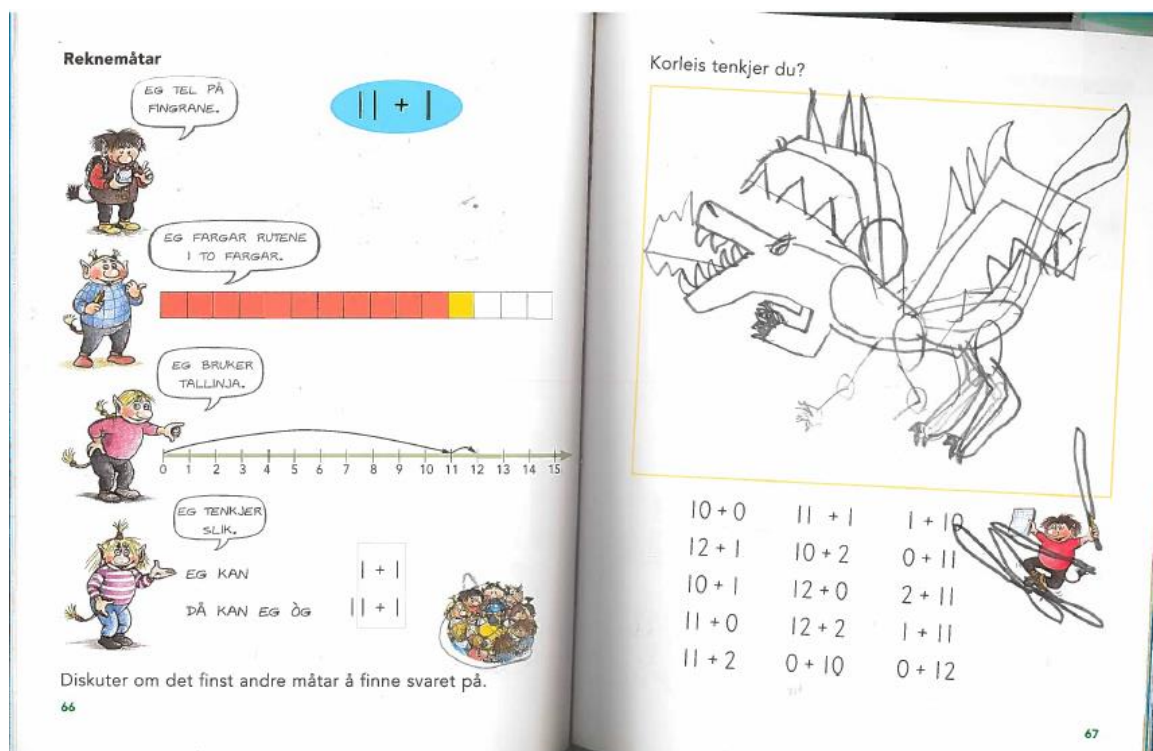 Reknemåtar
EG TEL PÅ
FINGRANE.
11 + 1
EG FARGAR RUTENE
I TO FARGAR.
EG BRUKER
TALLINJA.
0 1 2 3 4 5 6 7 8 9 10 11 12 13 14 15
EG TENKJER
SLIK.
EG KAN 1 + 1
DÅ KAN EG ÒG 11 + 1
Diskuter om det finst andre måtar å finne svaret på.
66
Korleis tenkjer du?
10 + 0 11 + 1 1 + 10
12 + 1 10 + 2 0 + 11
10 + 1 12 + 0 2 + 11
11 + 0 12 + 2 1 + 11
11 + 2 0 + 10 0 + 12
67